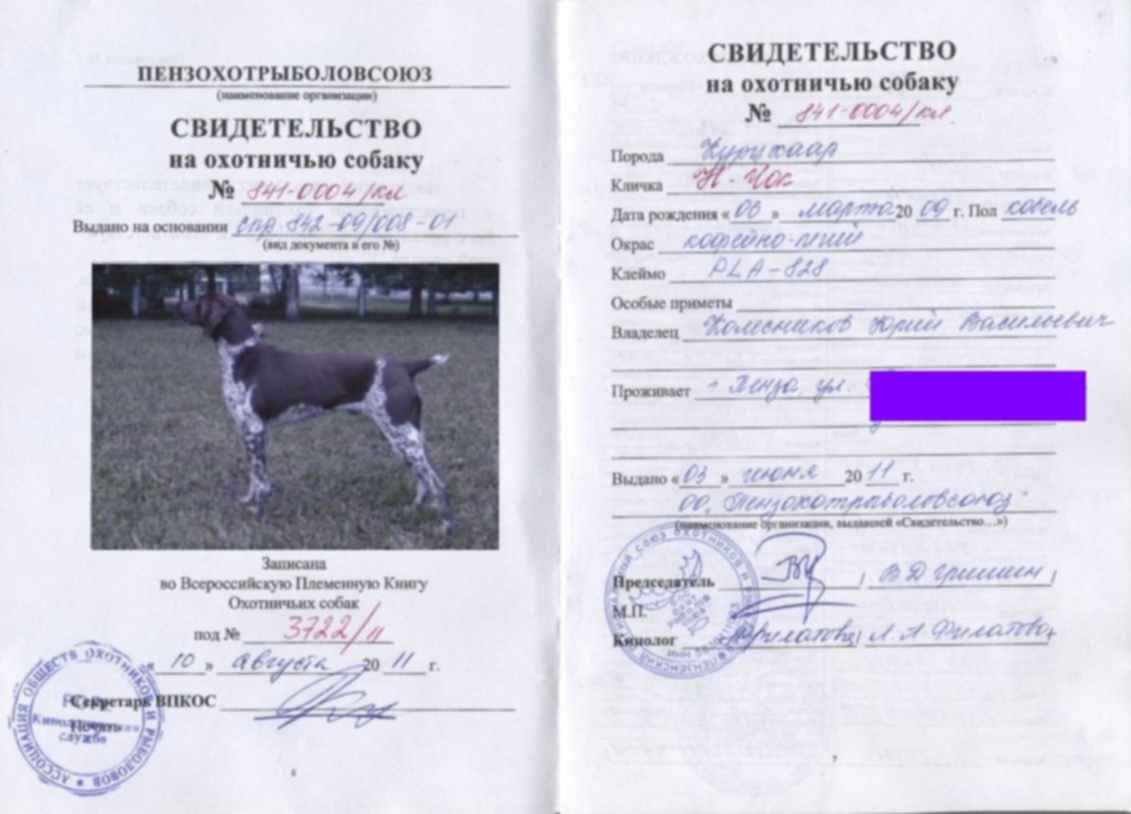 ПЕНЗОХОТРЫБОЛОВСОЮЗ
(наименование организации)
СВИДЕТЕЛЬСТВО
на охотничью собаку
№ 841-0004/кл
Выдано на основании спр 842-09/008-01
(вид документа и его №)
Записана
во Всероссийскую Племенную Книгу
Охотничьих собак
под № 3722/11
« 10 » Августа 20 11 г.
Секретарь ВПКОС
Печать
АССОЦИАЦИЯ ОБЩЕСТВ ОХОТНИКОВ И РЫБОЛОВОВ
служба
6
СВИДЕТЕЛЬСТВО
на охотничью собаку
№ 841-0004/кл.
Порода Курцхаар
Кличка Н-Чок
Дата рождения « 03 » марта 20 09 г. Пол кобель
Окрас кофейно-пегий
Клеймо PLA-828
Особые приметы
Владелец Колесников Юрий Васильевич
Проживает г. Пенза, ул.
Выдано « 03 » июня 20 11 г.
ОО "Пензохотрыболовсоюз"
(наименование организации, выдавшей «Свидетельство...»)
Председатель / В Д Гришин /
М.П.
Кинолог / Л. А. Филатова /
7